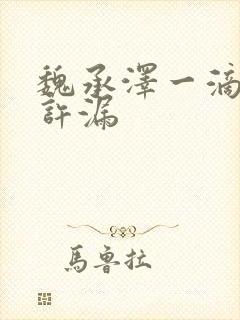 魏承澤一滴
許漏
馬魯拉